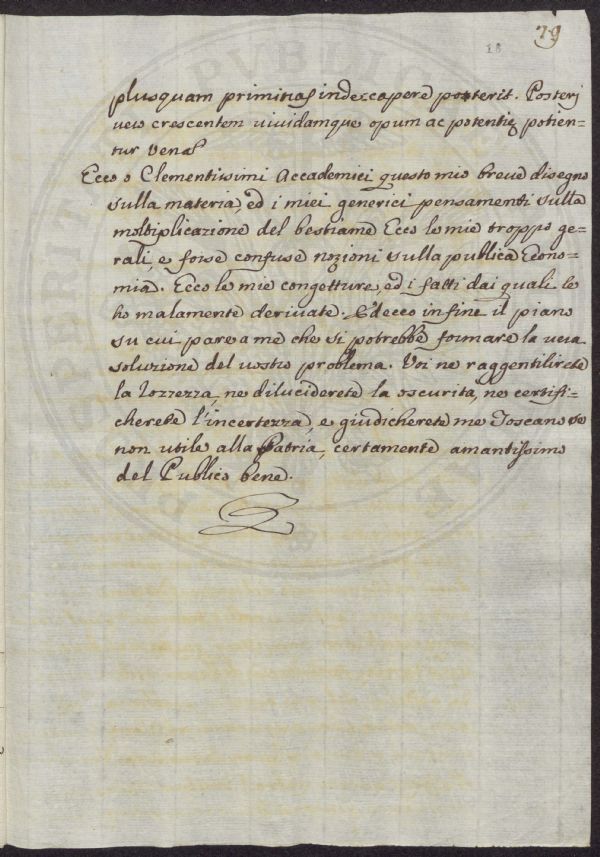 79
18
plusquam primitias inde capere poterit. Posterj
vero crescentem vividamque opum ac potentię potien-
tur vena
Ecco o Clementissimi Accademici questo mio breve disegno
sulla materia, ed i miei generici pensamenti sulla
moltiplicazione del bestiame Ecco le mie troppo ge-
rali, e forse confuse nozioni sulla publica Econo-
mia. Ecco le mie congetture, ed i fatti dai quali le
ho malamente derivate. Ed ecco in fine il piano
su cui pare a me che si potrebbe formare la vera
soluzione del vostro problema. Voi ne raggentilirete
la rozzezza, ne diluciderete la oscurità, ne certifi-
cherete l'incertezza, e giudicherete me Toscano se
non utile alla Patria, certamente amantissimo
del Publico bene.